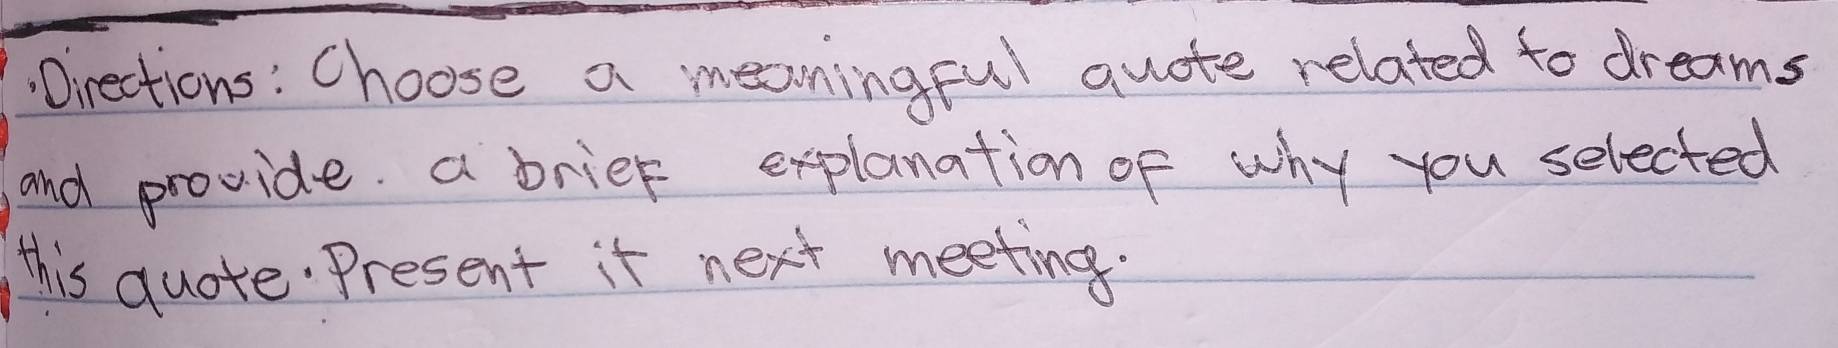 ·Directions: Choose a meaningful quote related to dreams
and provide. a brief explanation of why you selected
this quote. Present it next meeting.